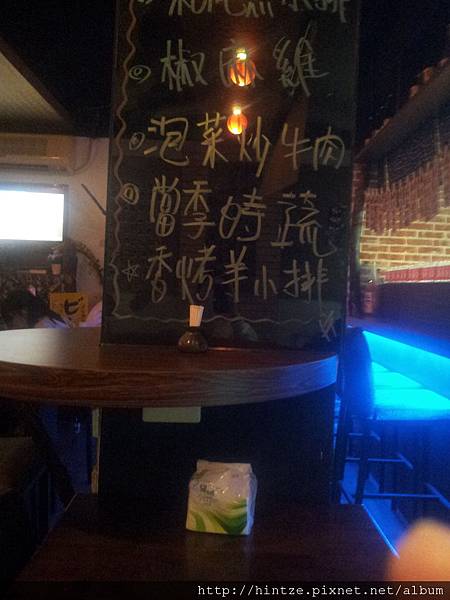 椒麻雞
泡菜炒牛肉
當季時蔬
香烤羊小排
http://hintze.pixnet.net/album